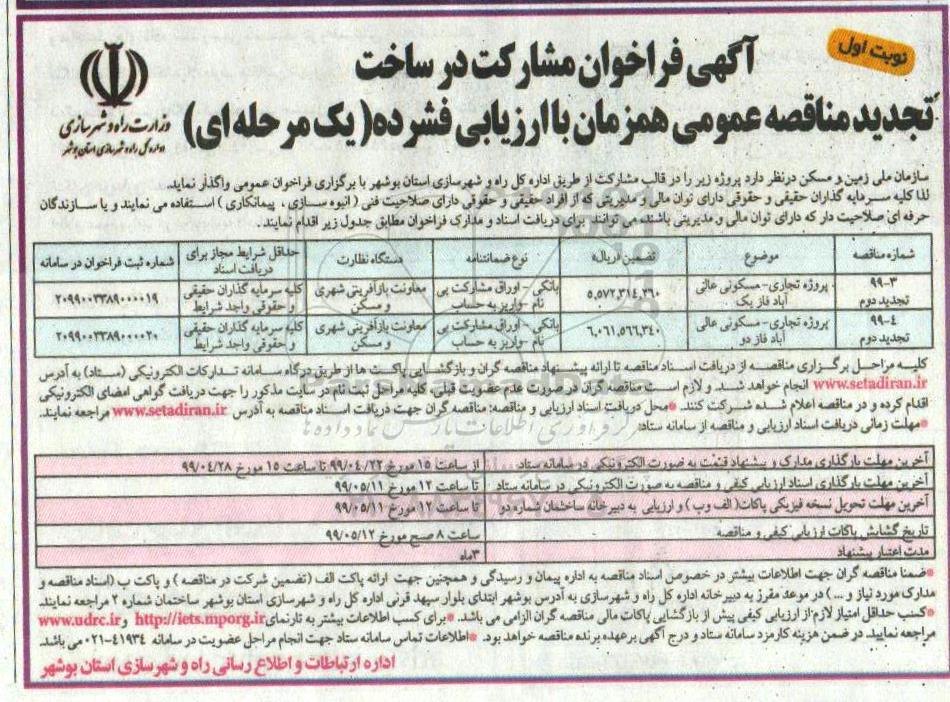 نوبت اول
آگهی فراخوان مشارکت در ساخت
تجدید مناقصه عمومی همزمان با ارزیابی فشرده( یک مرحله ای)
وزارت راه و شهرسازی
اداره کل راه و شهرسازی استان بوشهر
سازمان ملی زمین و مسکن درنظر دارد پروژه زیر را در قالب مشارکت از طریق اداره کل راه و شهرسازی استان بوشهر با برگزاری فراخوان عمومی واگذار نماید.
لذا کلیه سرمایه گذاران حقیقی و حقوقی دارای توان مالی و مدیریتی که از افراد حقیقی و حقوقی دارای صلاحیت فنی ( انبوه سازی ، پیمانکاری ) استفاده می نمایند و یا سازندگان
حرفه ای صلاحیت دار که دارای توان مالی و مدیریتی باشند می توانند برای دریافت اسناد و مدارک فراخوان مطابق جدول زیر اقدام نمایند.
شماره مناقصه موضوع تضمین «ریال» نوع ضمانتنامه دستگاه نظارت حداقل شرایط مجاز برای دریافت اسناد شماره ثبت فراخوان در سامانه
۹۹-۳ تجدید دوم پروژه تجاری-مسکونی عالی آباد فاز یک ۵,۵۷۲,۳۱۴,۲۶۰ بانکی - اوراق مشارکت بی نام -واریز به حساب معاونت بازآفرینی شهری و مسکن کلیه سرمایه گذاران حقیقی و حقوقی واجد شرایط ۲۰۹۹۰۰۳۳۸۹۰۰۰۰۱۹
۹۹-۴ تجدید دوم پروژه تجاری-مسکونی عالی آباد فاز دو ۶,۰۶۱,۵۶۶,۳۴۰ بانکی - اوراق مشارکت بی نام -واریز به حساب معاونت بازآفرینی شهری و مسکن کلیه سرمایه گذاران حقیقی و حقوقی واجد شرایط ۲۰۹۹۰۰۳۳۸۹۰۰۰۰۲۰
کلیه مراحل برگزاری مناقصه از دریافت اسناد مناقصه تا ارائه پیشنهاد مناقصه گران و بازگشایی پاکت ها از طریق درگاه سامانه تدارکات الکترونیکی (ستاد) به آدرس
www.setadiran.ir انجام خواهد شد. و لازم است مناقصه گران در صورت عدم عضویت قبلی، کلیه مراحل ثبت نام در سایت مذکور را جهت دریافت گواهی امضای الکترونیکی
اقدام کرده و در مناقصه اعلام شده شرکت کنند. *محل دریافت اسناد ارزیابی و مناقصه: مناقصه گران جهت دریافت اسناد مناقصه به آدرس www.setadiran.ir مراجعه نمایند.
*مهلت زمانی دریافت اسناد ارزیابی و مناقصه از سامانه ستاد:
آخرین مهلت بارگذاری مدارک و پیشنهاد قیمت به صورت الکترونیکی در سامانه ستاد از ساعت ۱۵ مورخ ۹۹/۰۴/۲۲ تا ساعت ۱۵ مورخ ۹۹/۰۴/۲۸
آخرین مهلت بارگذاری اسناد ارزیابی کیفی و مناقصه به صورت الکترونیکی در سامانه ستاد تا ساعت ۱۲ مورخ ۹۹/۰۵/۱۱
آخرین مهلت تحویل نسخه فیزیکی پاکات( الف وب ) و ارزیابی به دبیرخانه ساختمان شماره دو تا ساعت ۱۲ مورخ ۹۹/۰۵/۱۱
تاریخ گشایش پاکات ارزیابی کیفی و مناقصه ساعت ۸ صبح مورخ ۹۹/۰۵/۱۲
مدت اعتبار پیشنهاد ۳ماه
*ضمنا مناقصه گران جهت اطلاعات بیشتر در خصوص اسناد مناقصه به اداره پیمان و رسیدگی و همچنین جهت ارائه پاکت الف ( تضمین شرکت در مناقصه ) و پاکت ب (اسناد مناقصه و
مدارک مورد نیاز و ... ) در موعد مقرر به دبیرخانه اداره کل راه و شهرسازی به آدرس بوشهر ابتدای بلوار سپهبد قرنی اداره کل راه و شهرسازی استان بوشهر ساختمان شماره ۲ مراجعه نمایند.
*کسب حداقل امتیاز لازم از ارزیابی کیفی پیش از بازگشایی پاکات مالی مناقصه گران الزامی می باشد. *برای کسب اطلاعات بیشتر به تارنمای http://iets.mporg.ir و www.udrc.ir
مراجعه نمایید. در ضمن هزینه کارمزد سامانه ستاد و درج آگهی برعهده برنده مناقصه خواهد بود. *اطلاعات تماس سامانه ستاد جهت انجام مراحل عضویت در سامانه ۴۱۹۳۴-۰۲۱ می باشد.
اداره ارتباطات و اطلاع رسانی راه و شهرسازی استان بوشهر